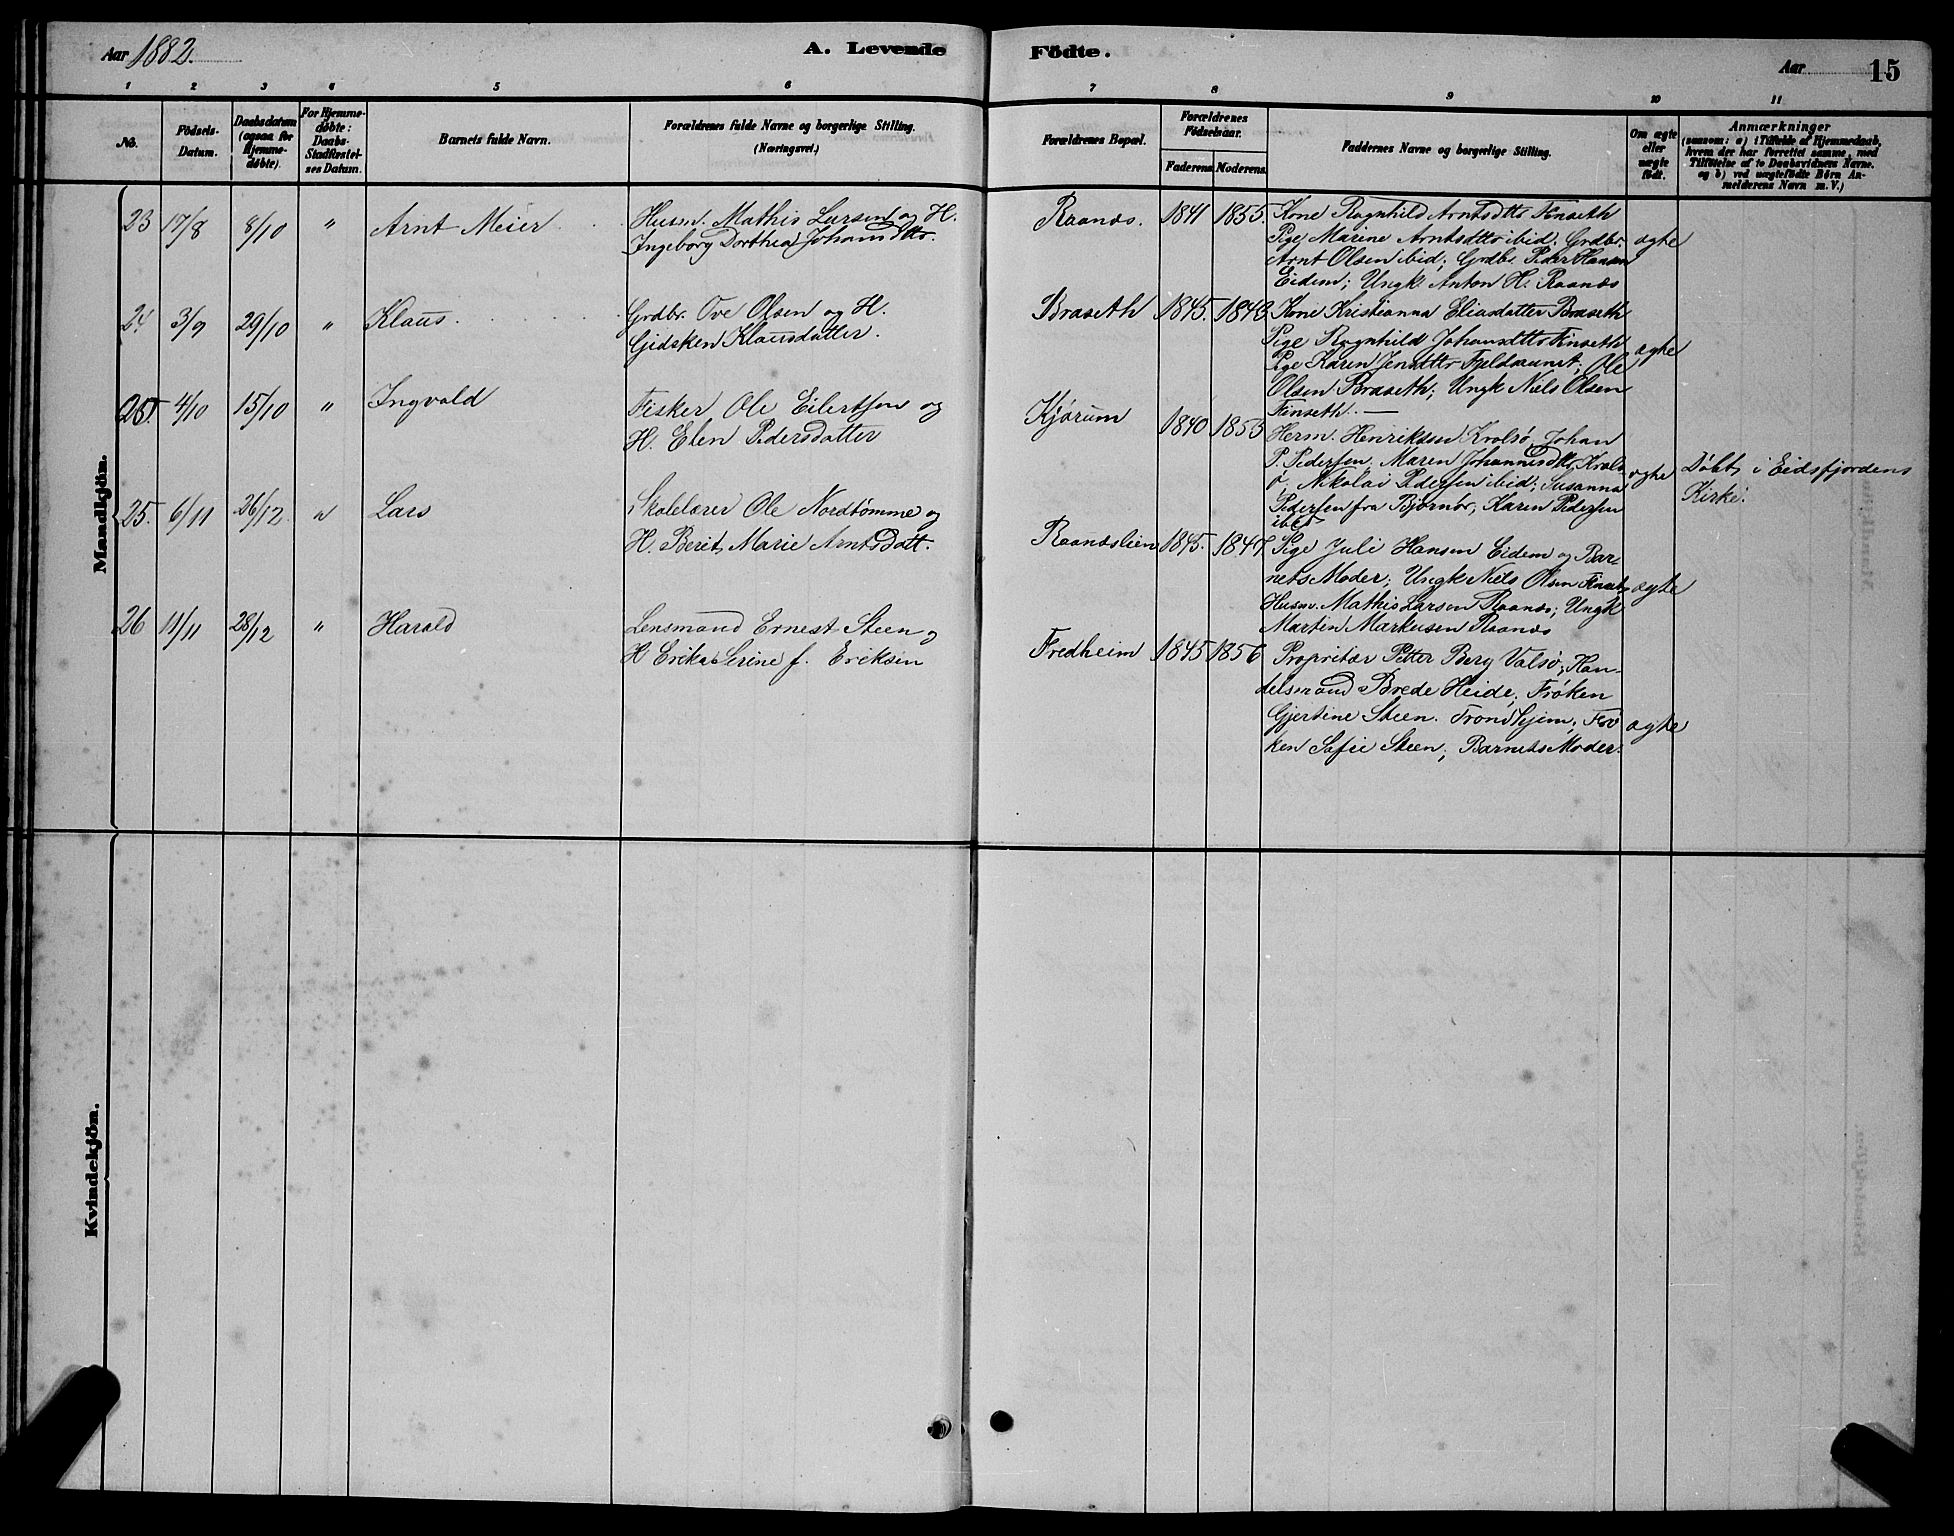 Aar 1882.
A. Levende
Födte.
Aar
15
1 2 3 4 5 6 7 8 9 10 11
No.
Födsels-
Datum.
Daabsdatum
(ogsaa for
Hjemme-
döbte).
For Hjemme-
døbte:
Daabs-
Stadfæstel-
ses Datum.
Barnets fulde Navn.
Forældrenes fulde Navne og borgerlige Stilling.
(Næringsvei.)
Forældrenes Bopæl.
Forældrenes
Födselsaar.
Faderens. Moderens.
Faddernes Navne og borgerlige Stilling.
Om ægte
eller
uægte
födt.
Anmærkninger
(saasom: a) i Tilfælde af Hjemmedaab,
hvem der har forrettet samme, med
Tilföielse af to Daabsvidners Navne.
og b) ved uægtefödte Börn An-
melderens Navn m. V.)
Mandkjön.
23 17/8 8/10 " Arnt Meier
Husm. Mathis Larsen og H.
Ingeborg Dorthea Johansdttr.
Raanæs. 1841 1855.
Kone Ragnhild Arntsdttr Finseth
Pige Marine Arntsdttr ibid; Grdbr.
Arnt Olsen ibid; Grdbr. Peder Hansen
Eidem; Ungk. Anton H. Raanæs
ægte
24 3/9 29/10 " Klaus.
Grdbr. Ove Olsen og H.
Gidsken Klausdatter.
Braseth 1845. 1843.
Kone Kristianna Eliasdatter Braseth
Pige Ragnhild Johansdttr Finseth
Pige Karen Jensdttr Fjeldaunet; Ole
Olsen Braseth; Ungk Niels Olsen
Finseth. —
ægte
25. 4/10 15/10 " Ingvald
Fisker Ole Eilertsen og
H. Elen Pedersdatter
Kjørum 1840 1853
Herm. Henriksen Kvalsø, Johan
P. Pedersen, Maren Johannesdttr Kvals
ø, Nikolai Pedersen ibid; Susanna
Pedersen fra Bjørnør, Karen Pedersen
ibid
ægte
Døbt i Eidsfjordens
Kirke.
25. 6/11 26/12 " Lars
Skolelærer Ole Nordtømme og
H. Berit Marie Arntsdatt.
Raanæslien 1845. 1847.
Pige Juli Hansen Eidem og Bar-
nets Moder; Ungk Niels Olsen Finseth
Husm. Mathis Larsen Raanæs; Ungk
Martin Markusen Raanæs
ægte
26 11/11 28/12 " Harald
Lensmand Ernest Steen og
H Erika Serine f. Eriksen
Fredheim 1845 1856
Proprietær Petter Berg Valsø; Han-
delsmand Brede Heide; Frøken
Gjertine Steen. Trondhjem; Frø
ken Sofie Steen; Barnets Moder.
ægte
Kvindekjön.